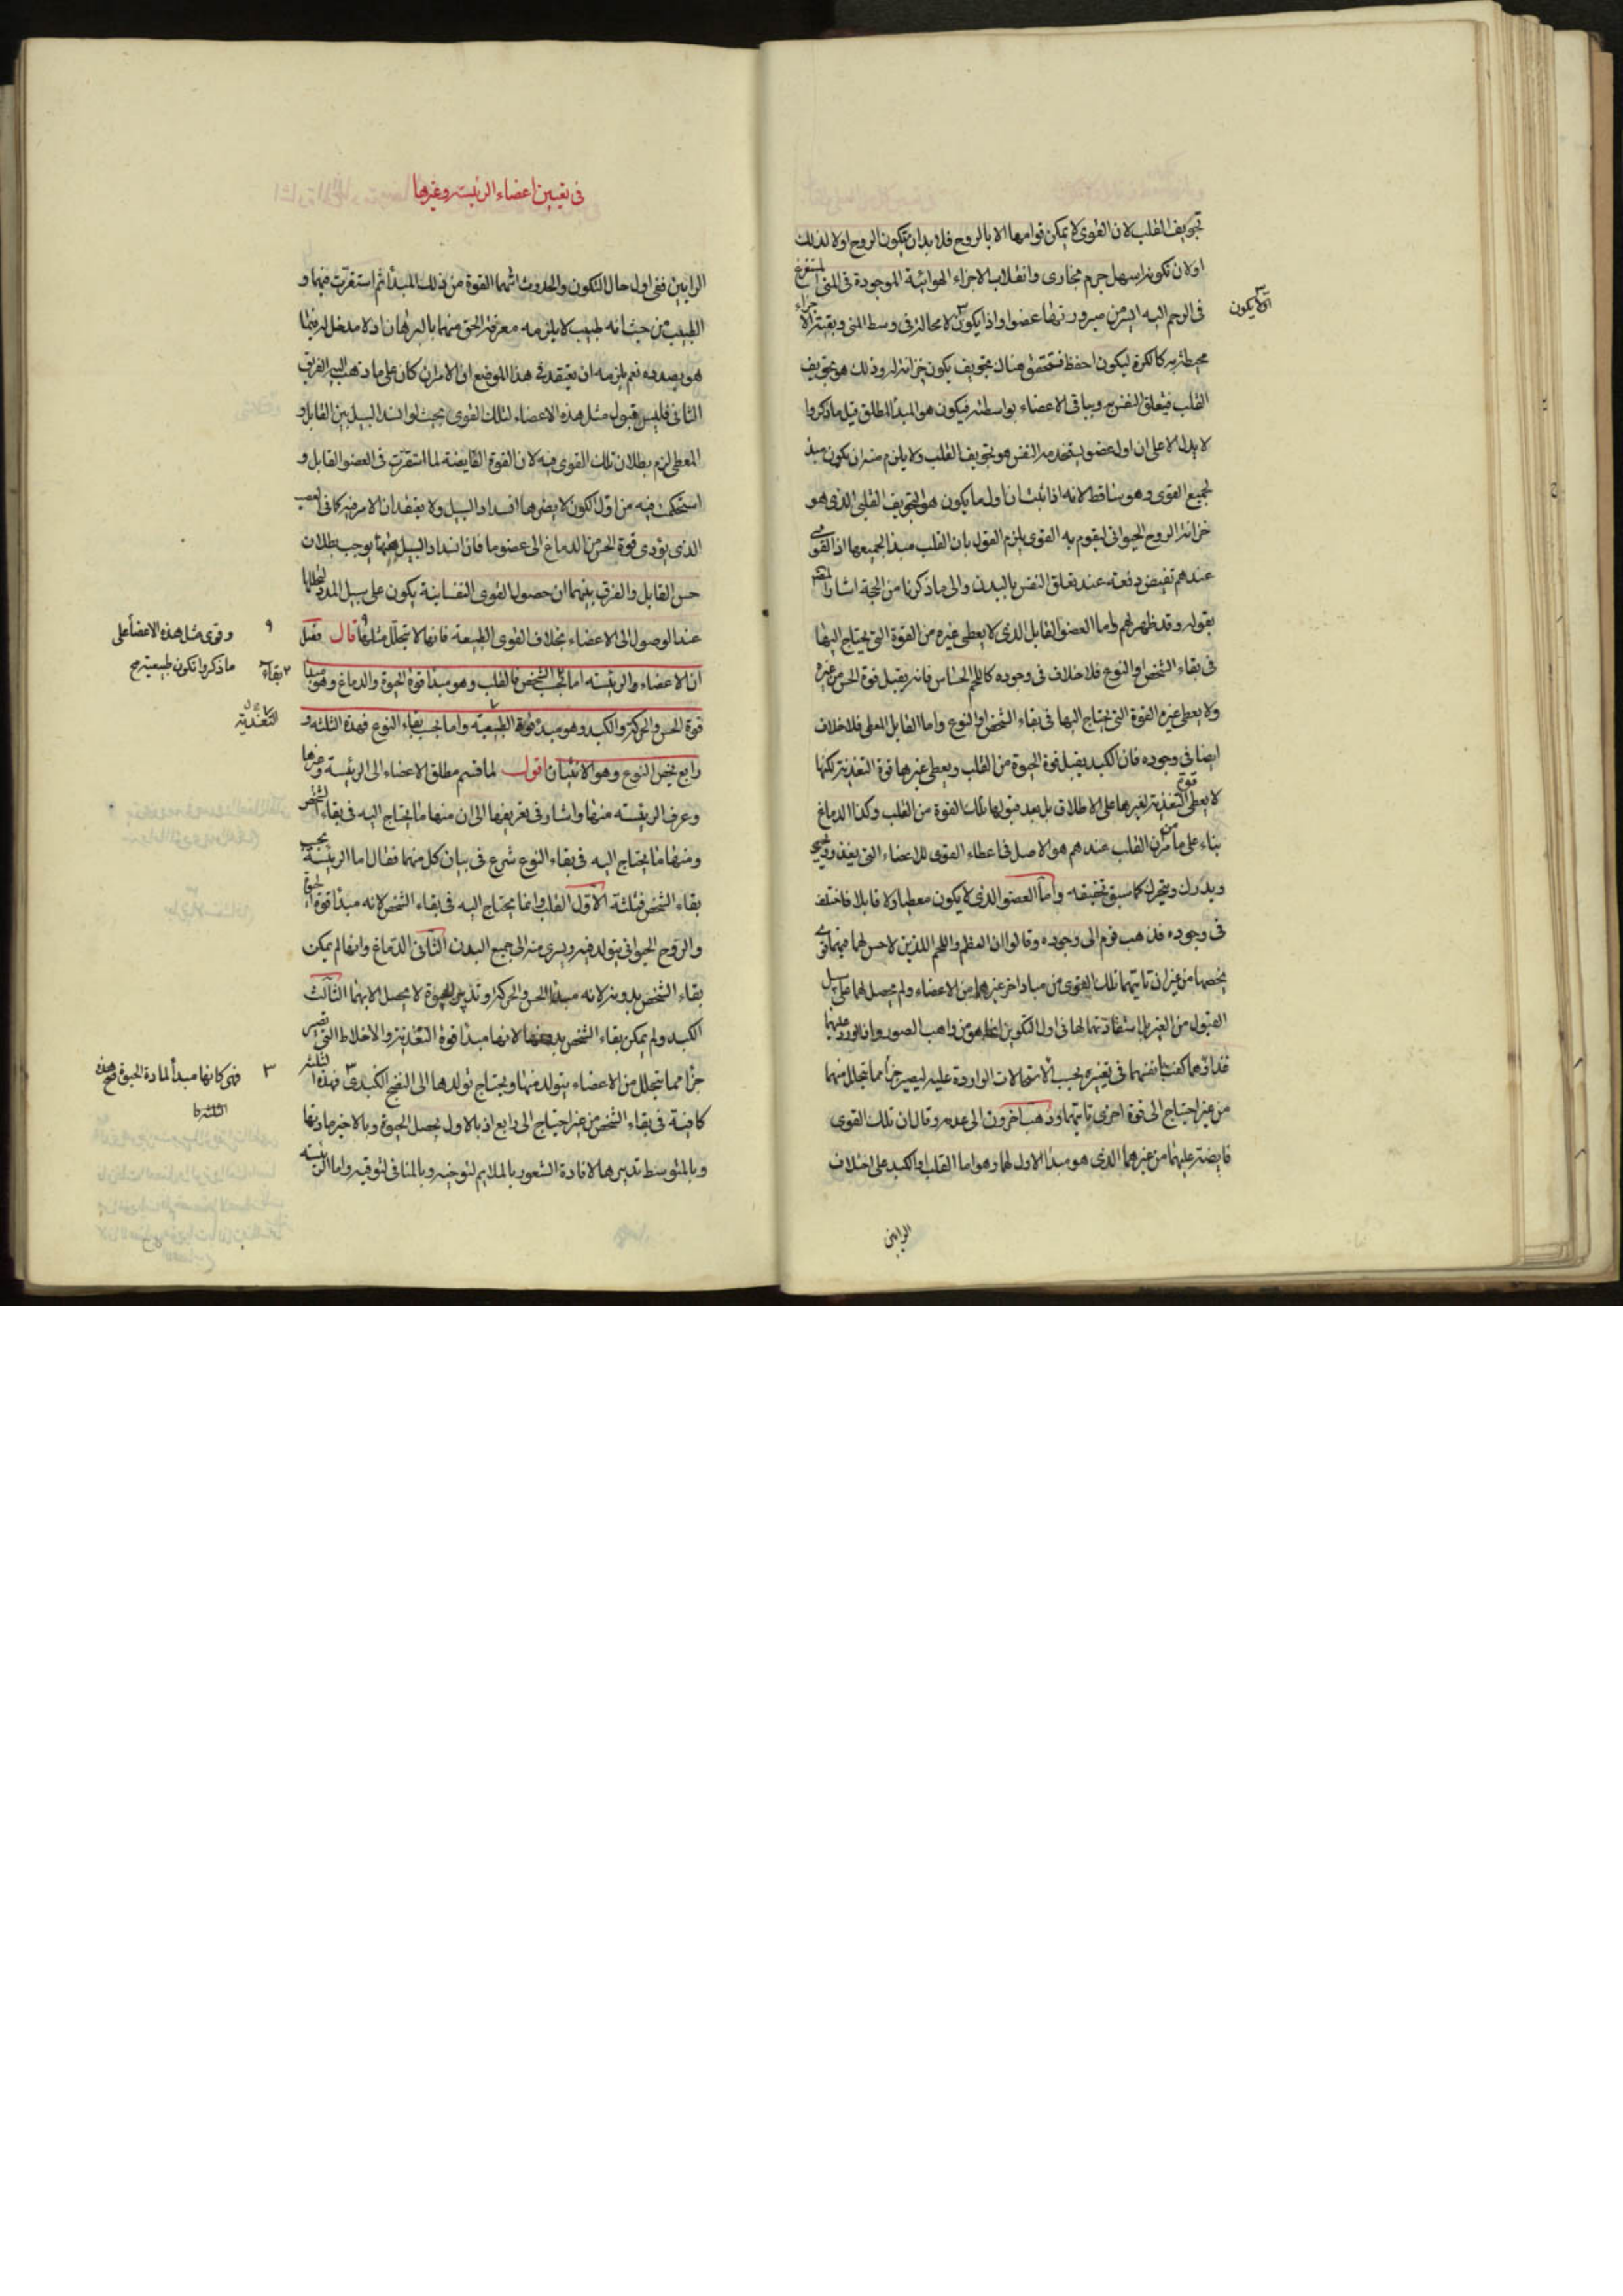 تجويف القلب لان القوى لا يمكن قوامها الا بالروح فلا بد ان يكون الروح اولا لذلك
اولان تكونه اسهل جرم مجارى وانقلاب الاجزاء الهوائية الموجودة فى المنى المستفرغ
فى الرحم اليه ايسر من صيرورتها عضوا واذا يكون لا محالة فى وسط المنى وبقيته الاجزاء
الا يكون
محيطة به كالكرة ليكون احفظ فتتحقق هناك تجويف يكون خزانة له وذلك هو تجويف
القلب فيتعلق النفس به وبباقى الاعضاء بواسطته فيكون هو المبدأ المطلق قيل ما ذكروا
لا يدل الا على ان اول عضو يستخدمه النفس هو تجويف القلب ولا يلزم منه ان يكون مبدأ
لجميع القوى وهو ساقط لانه اذا ثبت ان اول ما يكون هو التجويف القلبى الذى هو
خزانة الروح الحيوانى ليقوم به القوى يلزم القول بان القلب مبدأ لجميعها اذ القوى
عندهم تفيض دفعة عند تعلق النفس بالبدن والى ما ذكرنا من الحجة اشار المص
بقوله وقد ظهر لهم واما العضو القابل الذى لا يعطى غيره من القوة التى يحتاج اليها
فى بقاء الشخص او النوع فلا خلاف فى وجوده كاللحم الحساس فانه يقبل قوة الحس من غيره
ولا يعطى غيره القوة التى يحتاج اليها فى بقاء الشخص او النوع واما القابل المعطى فلا خلاف
ايضا فى وجوده فان الكبد يقبل قوة الحيوة من القلب ويعطى غيرها قوة التغذية لكنها
لا يعطى قوة التغذية لغيرها على الاطلاق بل بعد قبولها تلك القوة من القلب وكذا الدماغ
بناء على ما مر من ان القلب عندهم هو الاصل فى اعطاء القوى للاعضاء التى يغذو ويحيى
ويدرك ويتحرك كما سبق تحقيقه واما العضو الذى لا يكون معطيا ولا قابلا فاختلف
فى وجوده فذهب قوم الى وجوده وقالوا ان العظم واللحم اللذين لا حس لهما فيهما قوى
يخصهما من غير ان تاتيهما تلك القوى من مباد اخر غيرهما من الاعضاء ولم يحصل لهما على سبيل
القبول من الغير بل استفادتهما لها فى اول التكوين انما هو من واهب الصور واذا ورد عليهما
غذاؤهما كفتا بنفسهما فى تغييره بحسب الاستحالات الواردة عليه ليصير جزأ مما تحلل منهما
من غير احتياج الى قوة اخرى تاتيهما وذهب اخرون الى عدمه وقالوا ان تلك القوى
فايضة عليهما من غيرهما الذى هو مبدأ الاول لها وهو اما القلب او الكبد على اختلاف
الرايين
فى تعيين اعضاء الرئيسة وغيرها
الرايين ففى اول حال التكون والحدوث اتتهما القوة من ذلك المبدأ ثم استقرت فيهما و
الطبيب من حيث انه طبيب لا يلزمه معرفة الحق منهما بالبرهان اذ لا مدخل له فيما
هو بصدده نعم يلزمه ان يعتقد فى هذا الموضع ان الامر ان كان على ما ذهب اليه الفريق
الثانى فليس قبول مثل هذه الاعضاء لتلك القوى بحيث لو انسد السبيل بين القابل و
المعطى لزم بطلان تلك القوى فيه لان القوة الفايضة لما استقرت فى العضو القابل و
استحكمت فيه من اول الكون لا يضرها انسداد السبيل ولا يعتقد ان الامر فيه كما فى العصب
الذى يؤدى قوة الحس من الدماغ الى عضو ما فان انسداد السبيل بينهما يوجب بطلان
حس القابل والفرق بينهما ان حصول القوى النفسانية يكون على سبيل المدد لتحللها
عند الوصول الى الاعضاء بخلاف القوى الطبيعة فانها لا تتحلل مثلها قال فصل
وقوى مثل هذه الاعضأ على
ماذكروا تكون طبيعية صح
ان الاعضاء والرئيسه اما بحسب الشخص فالقلب وهو مبدأ قوة الحيوة والدماغ وهو مبدأ
بقاء
قوة الحس والحركة والكبد وهو مبدأ قوة الطبيعيه واما بحسب بقاء النوع فهذه الثلثه و
التغذية
رابع يخص النوع وهو الانثيان اقول لما قسم مطلق الاعضاء الى الرئيسة وغيرها
وعرف الرئيسة منها واشار فى تعريفها الى ان منها ما يحتاج اليه فى بقاء الشخص
ومنها ما يحتاج اليه فى بقاء النوع شرع فى بيان كل منهما فقال اما الرئيسة بحسب
بقاء الشخص فثلثة الاول القلب وانما يحتاج اليه فى بقاء الشخص لانه مبدأ قوة الحيوة
والروح الحيوانى يتولد فيه ويسرى منه الى جميع البدن الثانى الدماغ وانما لم يمكن
بقاء الشخص بدونه لانه مبدأ الحس والحركة وتدبير الحيوة لا يحصل الا بهما الثالث
الكبد ولم يمكن بقاء الشخص بدونها لانها مبدأ قوة التغذية والاخلاط التى تصير
جزأ مما تتحلل من الاعضاء يتولد منها ويحتاج تولدها الى النضج الكبدى فهذه الثلثة
فهى كانها مبدأ لمادة الحيوة صح
كافية فى بقاء الشخص من غير احتياج الى رابع اذ بالاول يحصل الحيوة وبالاخير مادتها
وبالمتوسط تدبيرها لافادة الشعور بالملايم لتوخيه وبالمنافى لتوقيه واما الرئيسة